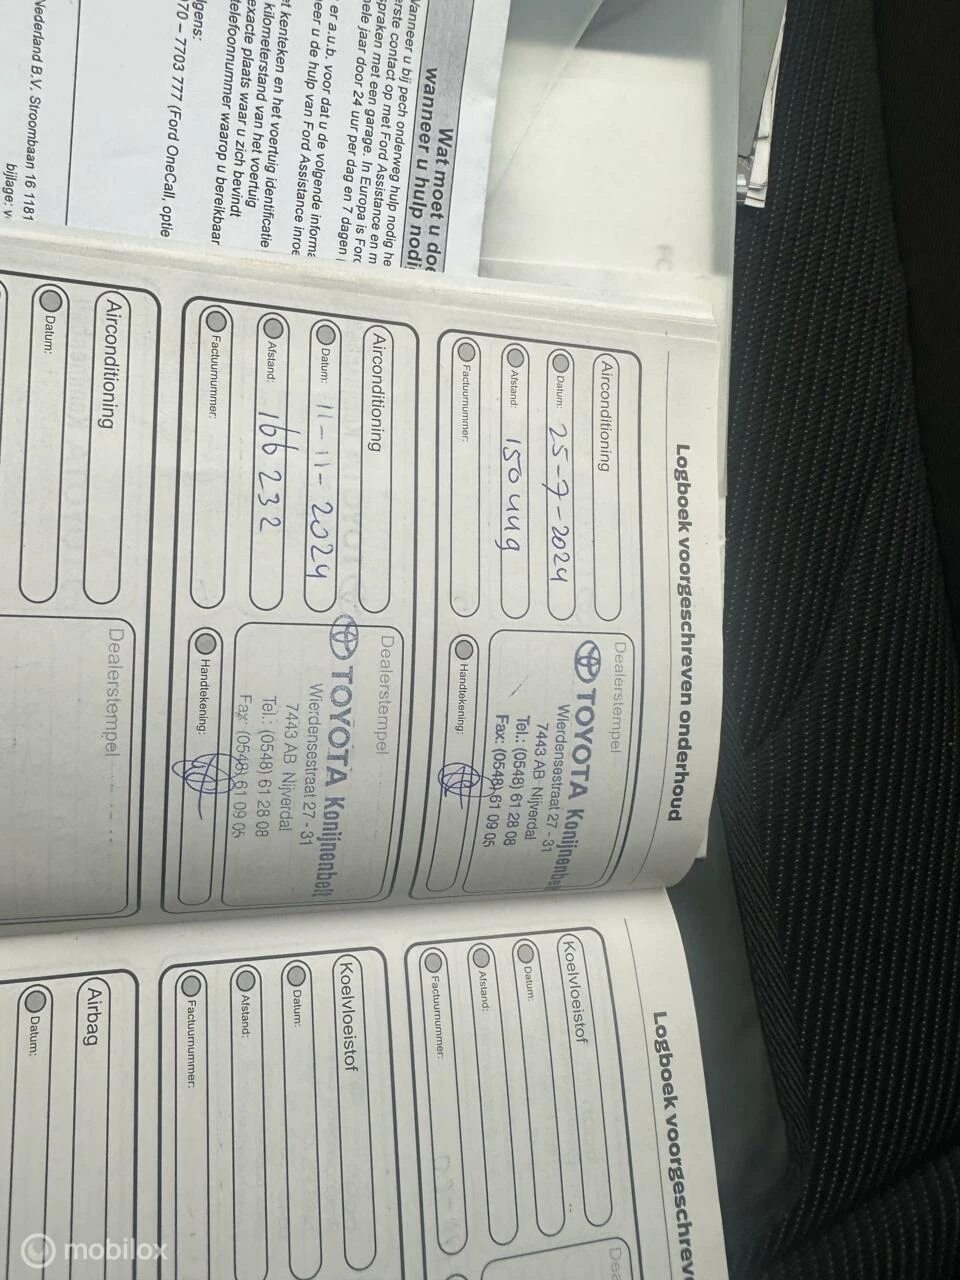 Wat moet u doe
wanneer u hulp nodi
Wanneer u bij pech onderweg hulp nodig he
erste contact op met Ford Assistance en m
spraken met een garage. In Europa is Ford
hele jaar door 24 uur per dag en 7 dagen
er a.u.b. voor dat u de volgende informa
eer u de hulp van Ford Assistance inroe
et kenteken en het voertuig identificatie
kilometerstand van het voertuig
exacte plaats waar u zich bevindt
telefoonnummer waarop u bereikbaar
lgens:
70 – 7703 777 (Ford OneCall, optie
Nederland B.V. Stroombaan 16 1181
bijlage: v
Logboek voorgeschreven onderhoud
Airconditioning
Datum: 25-7-2024
Afstand: 150449
Factuurnummer:
Dealerstempel
TOYOTA Konijnenbel
Wierdensestraat 27 - 31
7443 AB Nijverdal
Tel.: (0548) 61 28 08
Fax: (0548) 61 09 05
Handtekening:
Airconditioning
Datum: 11-11-2024
Afstand: 166232
Factuurnummer:
Dealerstempel
TOYOTA Konijnenbelt
Wierdensestraat 27 - 31
7443 AB Nijverdal
Tel.: (0548) 61 28 08
Fax: (0548) 61 09 05
Handtekening:
Airconditioning
Datum:
Dealerstempel
Logboek voorgeschrev
Koelvloeistof
Datum:
Afstand:
Factuurnummer:
Dea
Koelvloeistof
Datum:
Afstand:
Factuurnummer:
Airbag
Datum:
mobilox